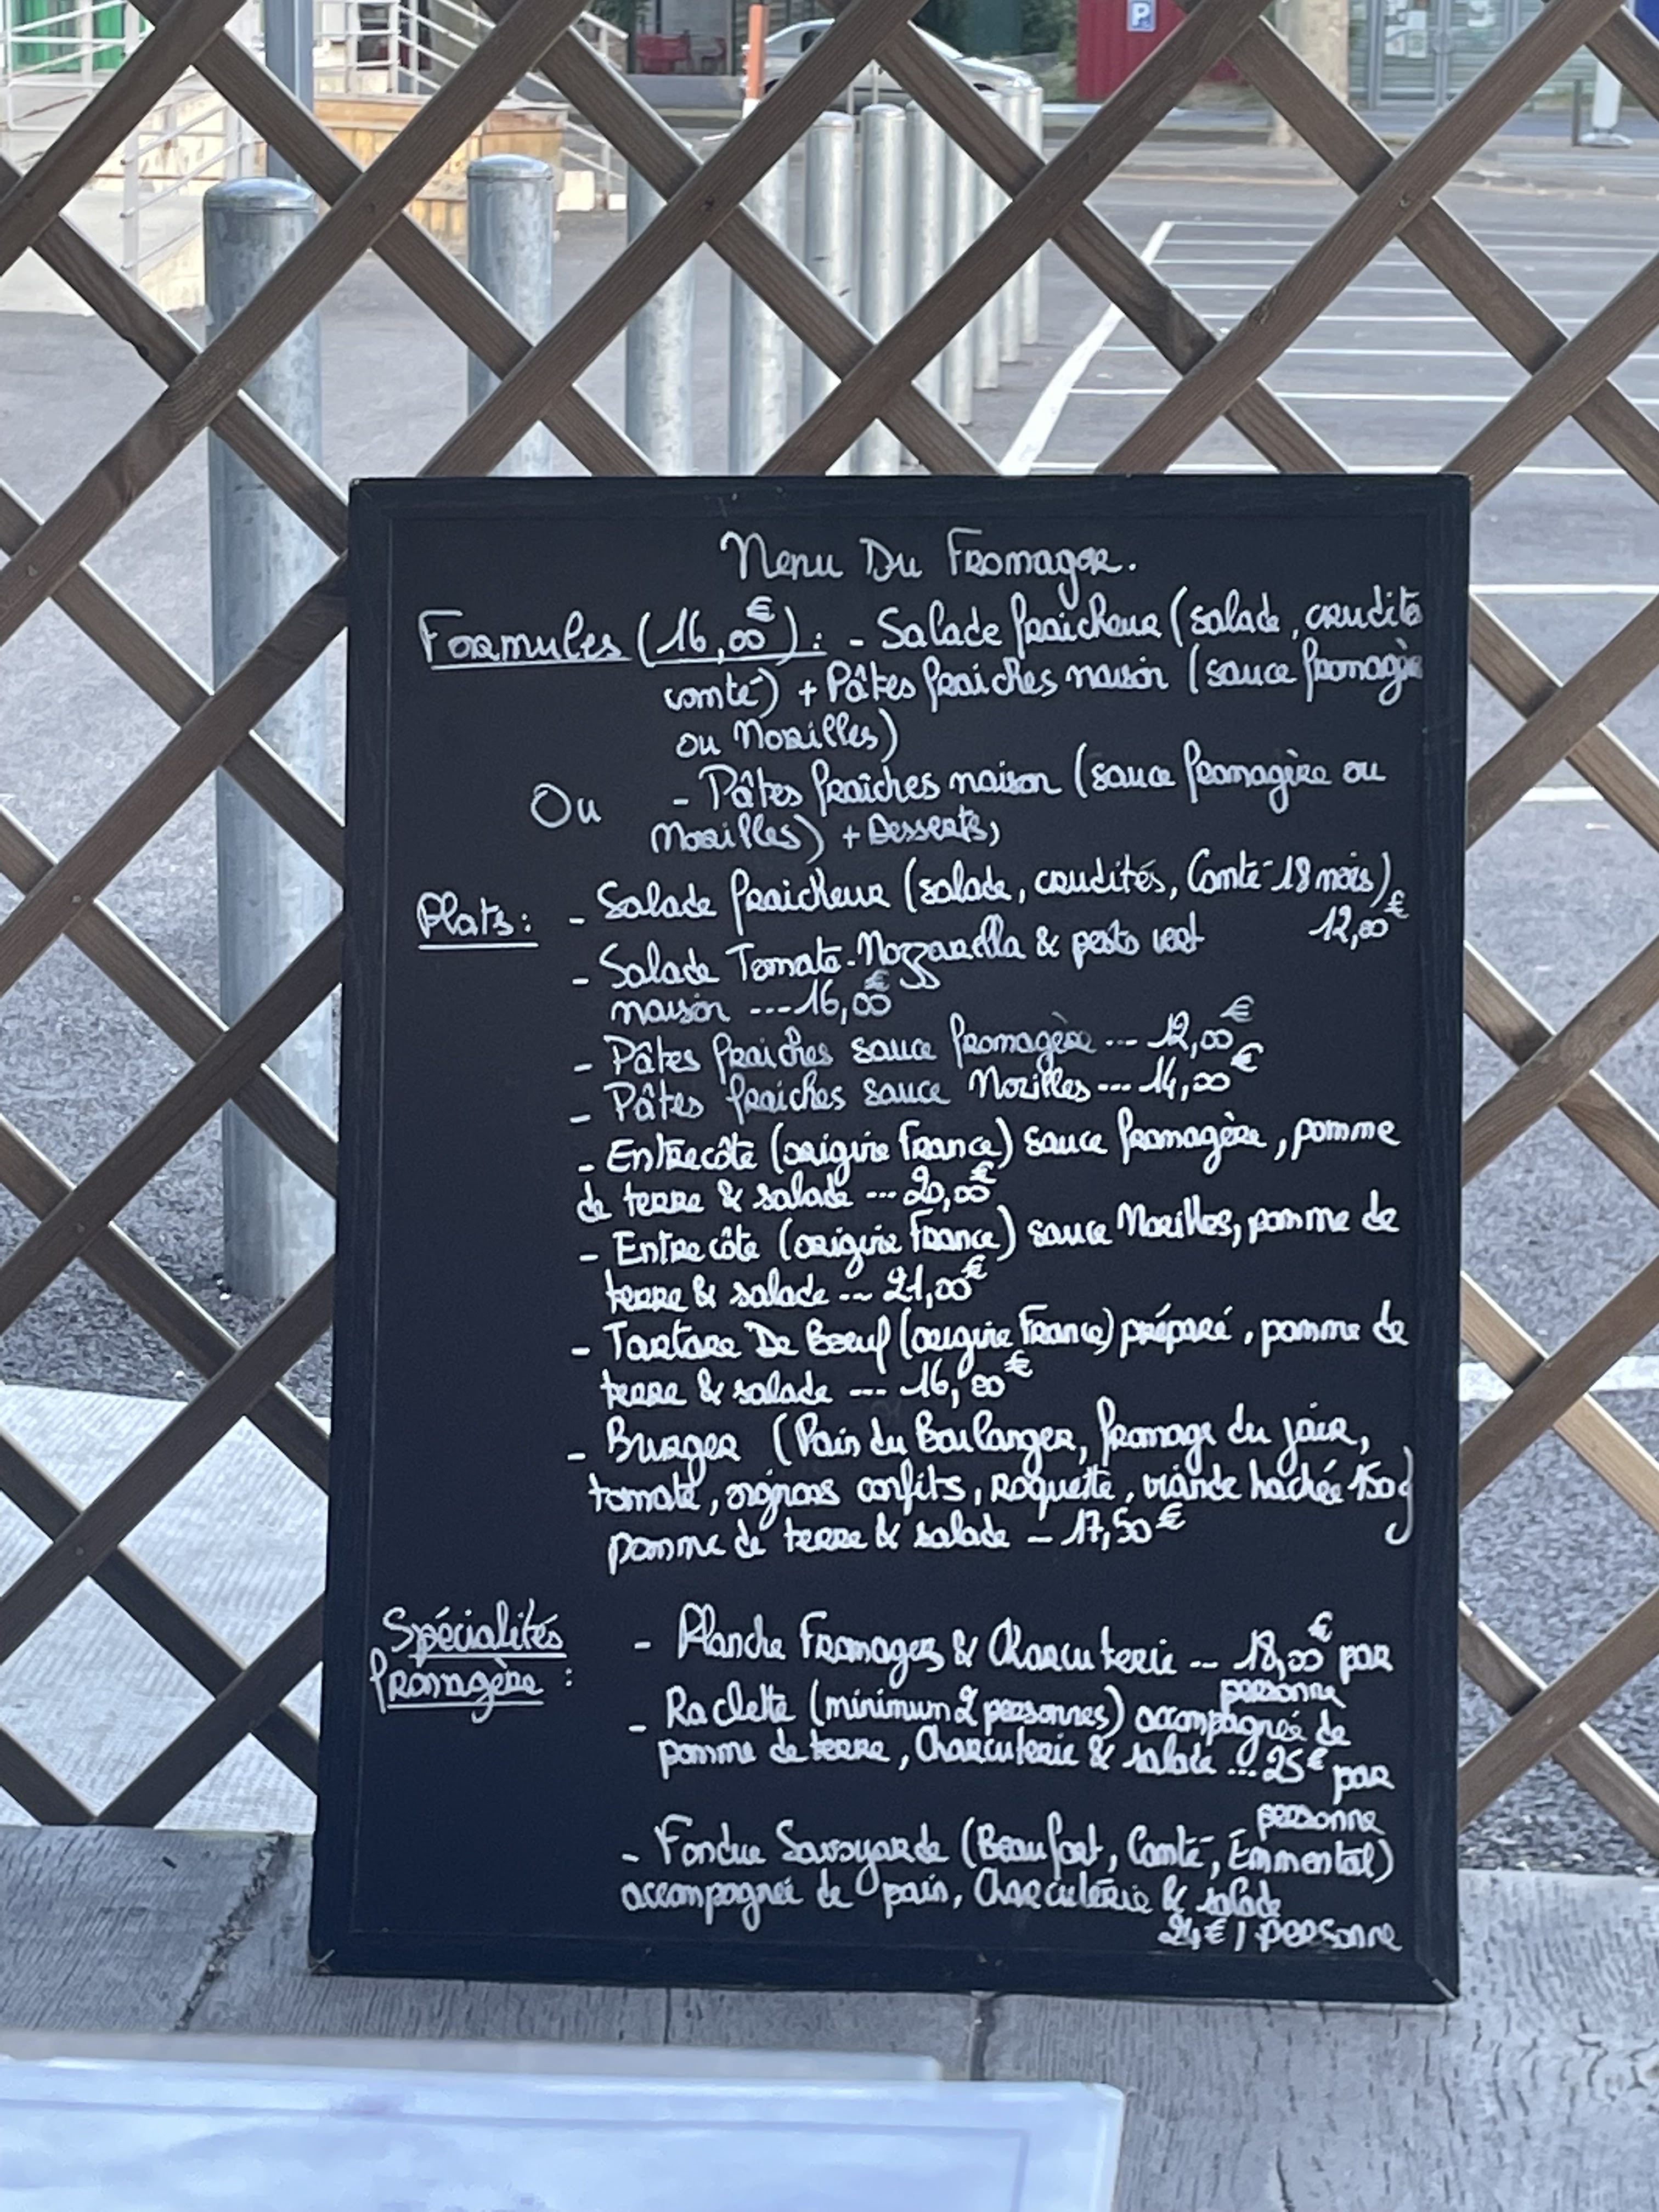 P
Menu Du Fromager.
Formules (16,00€) : - Salade fraicheur (salade, crudités
comté) + Pâtes fraiches maison (sauce fromagère
ou Morilles)
Ou - Pâtes fraîches maison (sauce fromagère ou
Morilles) + Desserts,
Plats : - Salade fraicheur (salade, crudités, Comté 18 mois)
12,00€
- Salade Tomate-Mozzarella & pesto vert
maison --- 16,00€
- Pâtes fraiches sauce fromagère --- 12,00€
- Pâtes fraiches sauce Morilles --- 14,00€
- Entrecôte (origine France) sauce fromagère, pomme
de terre & salade --- 20,00€
- Entrecôte (origine France) sauce Morilles, pomme de
terre & salade --- 21,00€
- Tartare De Bœuf (origine France) préparé, pomme de
terre & salade --- 16,00€
- Burger (Pain du Boulanger, fromage du jour,
tomate, oignons confits, roquette, viande hachée 150g)
pomme de terre & salade - 17,50€
Spécialités
fromagère :
- Planche Fromages & Charcuterie --- 18,00€ par
personne
- Raclette (minimum 2 personnes) accompagnée de
pomme de terre, Charcuterie & salade ... 25€ par
personne
- Fondue Savoyarde (Beaufort, Comté, Emmental)
accompagnée de pain, Charcuterie & salade
24€ / personne